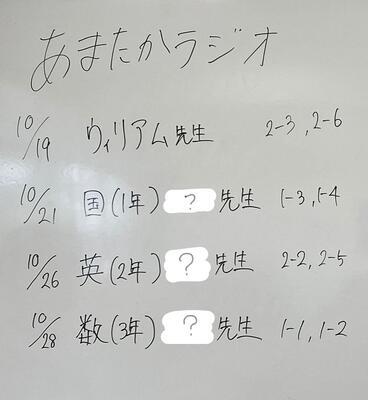 あまたかラジオ
10/19 ウィリアム先生 2-3, 2-6
10/21 国(1年) ? 先生 1-3, 1-4
10/26 英(2年) ? 先生 2-2, 2-5
10/28 数(3年) ? 先生 1-1, 1-2